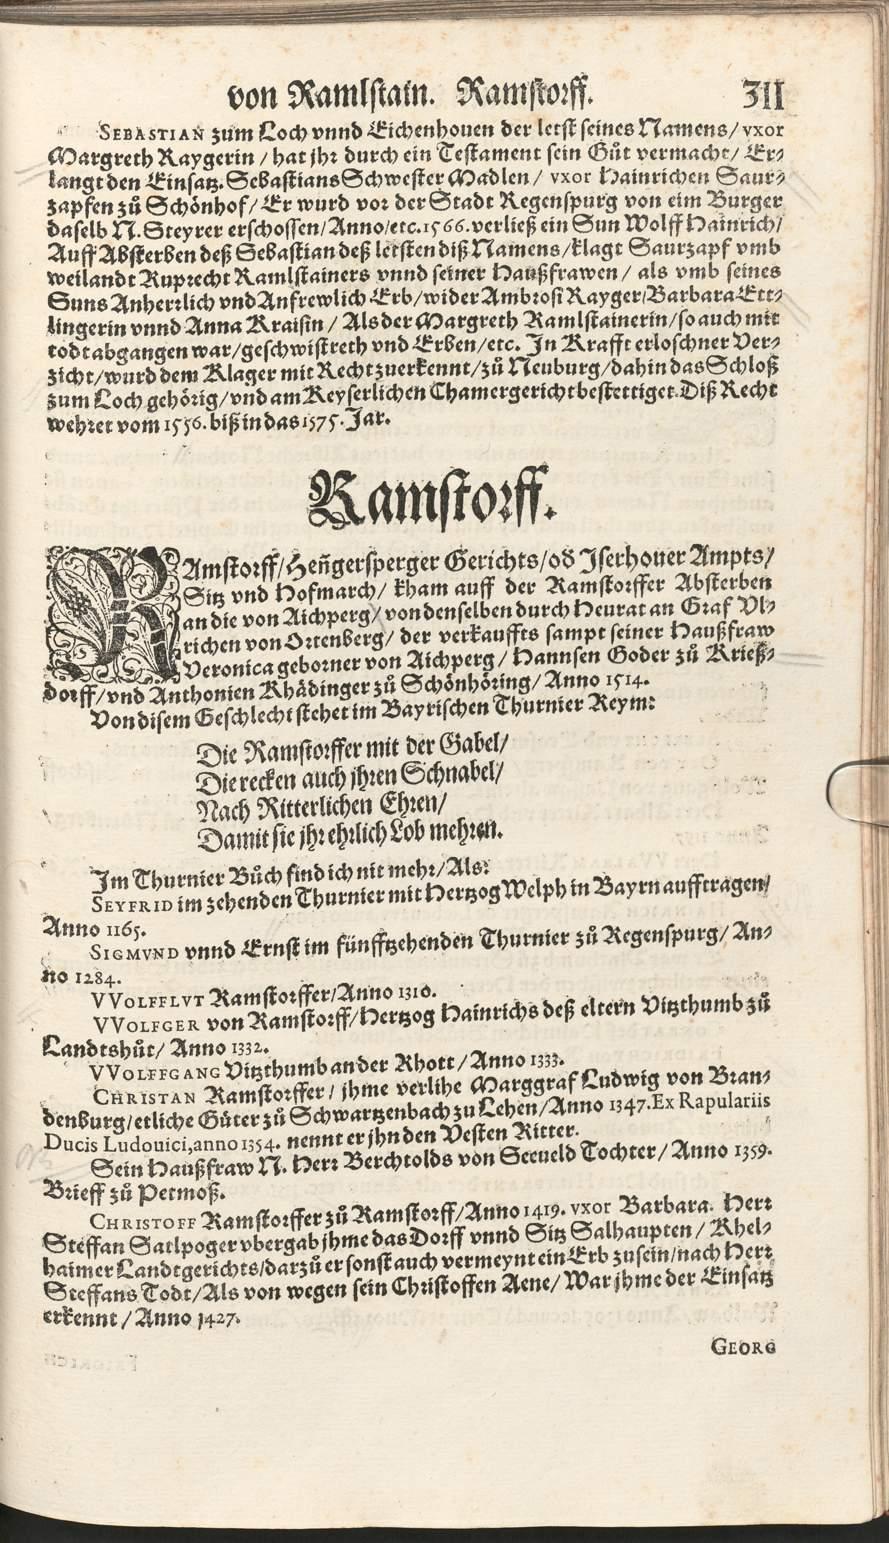 von Ramlstain. Ramstorff. 311
SEBASTIAN zum Loch vnnd Eichenhouen der letst seines Namens/ vxor
Margreth Raygerin / hat jhr durch ein Testament sein Gůt vermacht/ Er⸗
langt den Einsatz. Sebastians Schwester Madlen/ vxor Hainrichen Saur⸗
zapfen zů Schönhof/ Er wurd vor der Stadt Regenspurg von eim Burger
daselb N. Steyrer erschossen/Anno/etc.1566.verließ ein Sun Wolff Hainrich/
Auff Absterben deß Sebastian deß letsten diß Namens/klagt Saurzapf vmb
weilandt Ruprecht Ramlstainers vnnd seiner Haußfrawen/ als vmb seines
Suns Anherrlich vnd Anfrewlich Erb/wider Ambrosi Rayger/Barbara Ett⸗
lingerin vnnd Anna Kraisin / Als der Margreth Ramlstainerin/so auch mit
todt abgangen war/geschwistreth vnd Erben/etc. In Krafft erloschner Ver⸗
zicht/wurd dem Klager mit Recht zuerkennt/zů Neuburg/dahin das Schloß
zum Loch gehörig/vnd am Keyserlichen Chamergericht bestettiget. Diß Recht
wehret vom 1556. biß in das 1575. Jar.
Ramstorff.
RAmstorff/Hen̄gersperger Gerichts/od̄ Iserhouer Ampts/
Sitz vnd Hofmarch/ kham auff der Ramstorffer Absterben
an die von Aichperg/ von denselben durch Heurat an Graf Vl⸗
richen von Ortenberg/ der verkauffts sampt seiner Haußfraw
Veronica geborner von Aichperg / Hannsen Goder zů Krieß⸗
dorff/vnd Anthonien Khädinger zů Schönhöring/ Anno 1514.
Von disem Geschlecht stehet im Bayrischen Thurnier Reym:
Die Ramstorffer mit der Gabel/
Die recken auch jhren Schnabel/
Nach Ritterlichen Ehren/
Damit sie jhr ehrlich Lob mehren.
Im Thurnier Bůch find ich nit mehr/Als:
SEYFRID im zehenden Thurnier mit Hertzog Welph in Bayrn aufftragen/
Anno 1165.
SIGMVND vnnd Ernst im fünfftzehenden Thurnier zů Regenspurg/ An⸗
no 1284.
VVOLFFLVT Ramstorffer/Anno 1310.
VVOLFGER von Ramstorff/Hertzog Hainrichs deß eltern Vitzthumb zů
Landtshůt/ Anno 1332.
VVOLFFGANG Vitzthumb an der Rhott/Anno 1333.
CHRISTAN Ramstorffer / jhme verlihe Marggraf Ludwig von Bran⸗
denburg/etliche Güter zů Schwartzenbach zu Lehen/Anno 1347.Ex Rapulariis
Ducis Ludouici,anno 1354. nennt er jhn den Vesten Ritter.
Sein Haußfraw N. Herr Berchtolds von Seeueld Tochter/ Anno 1359.
Brieff zů Petmoß.
CHRISTOFF Ramstorffer zů Ramstorff/Anno 1419. vxor Barbara. Herr
Steffan Satlpoger vbergab jhme das Dorff vnnd Sitz Salhaupten / Khel⸗
haimer Landtgerichts/darzů er sonst auch vermeynt ein Erb zu sein/nach Herr
Steffans Todt/Als von wegen sein Christoffen Aene/ War jhme der Einsatz
erkennt / Anno 1427.
GEORG